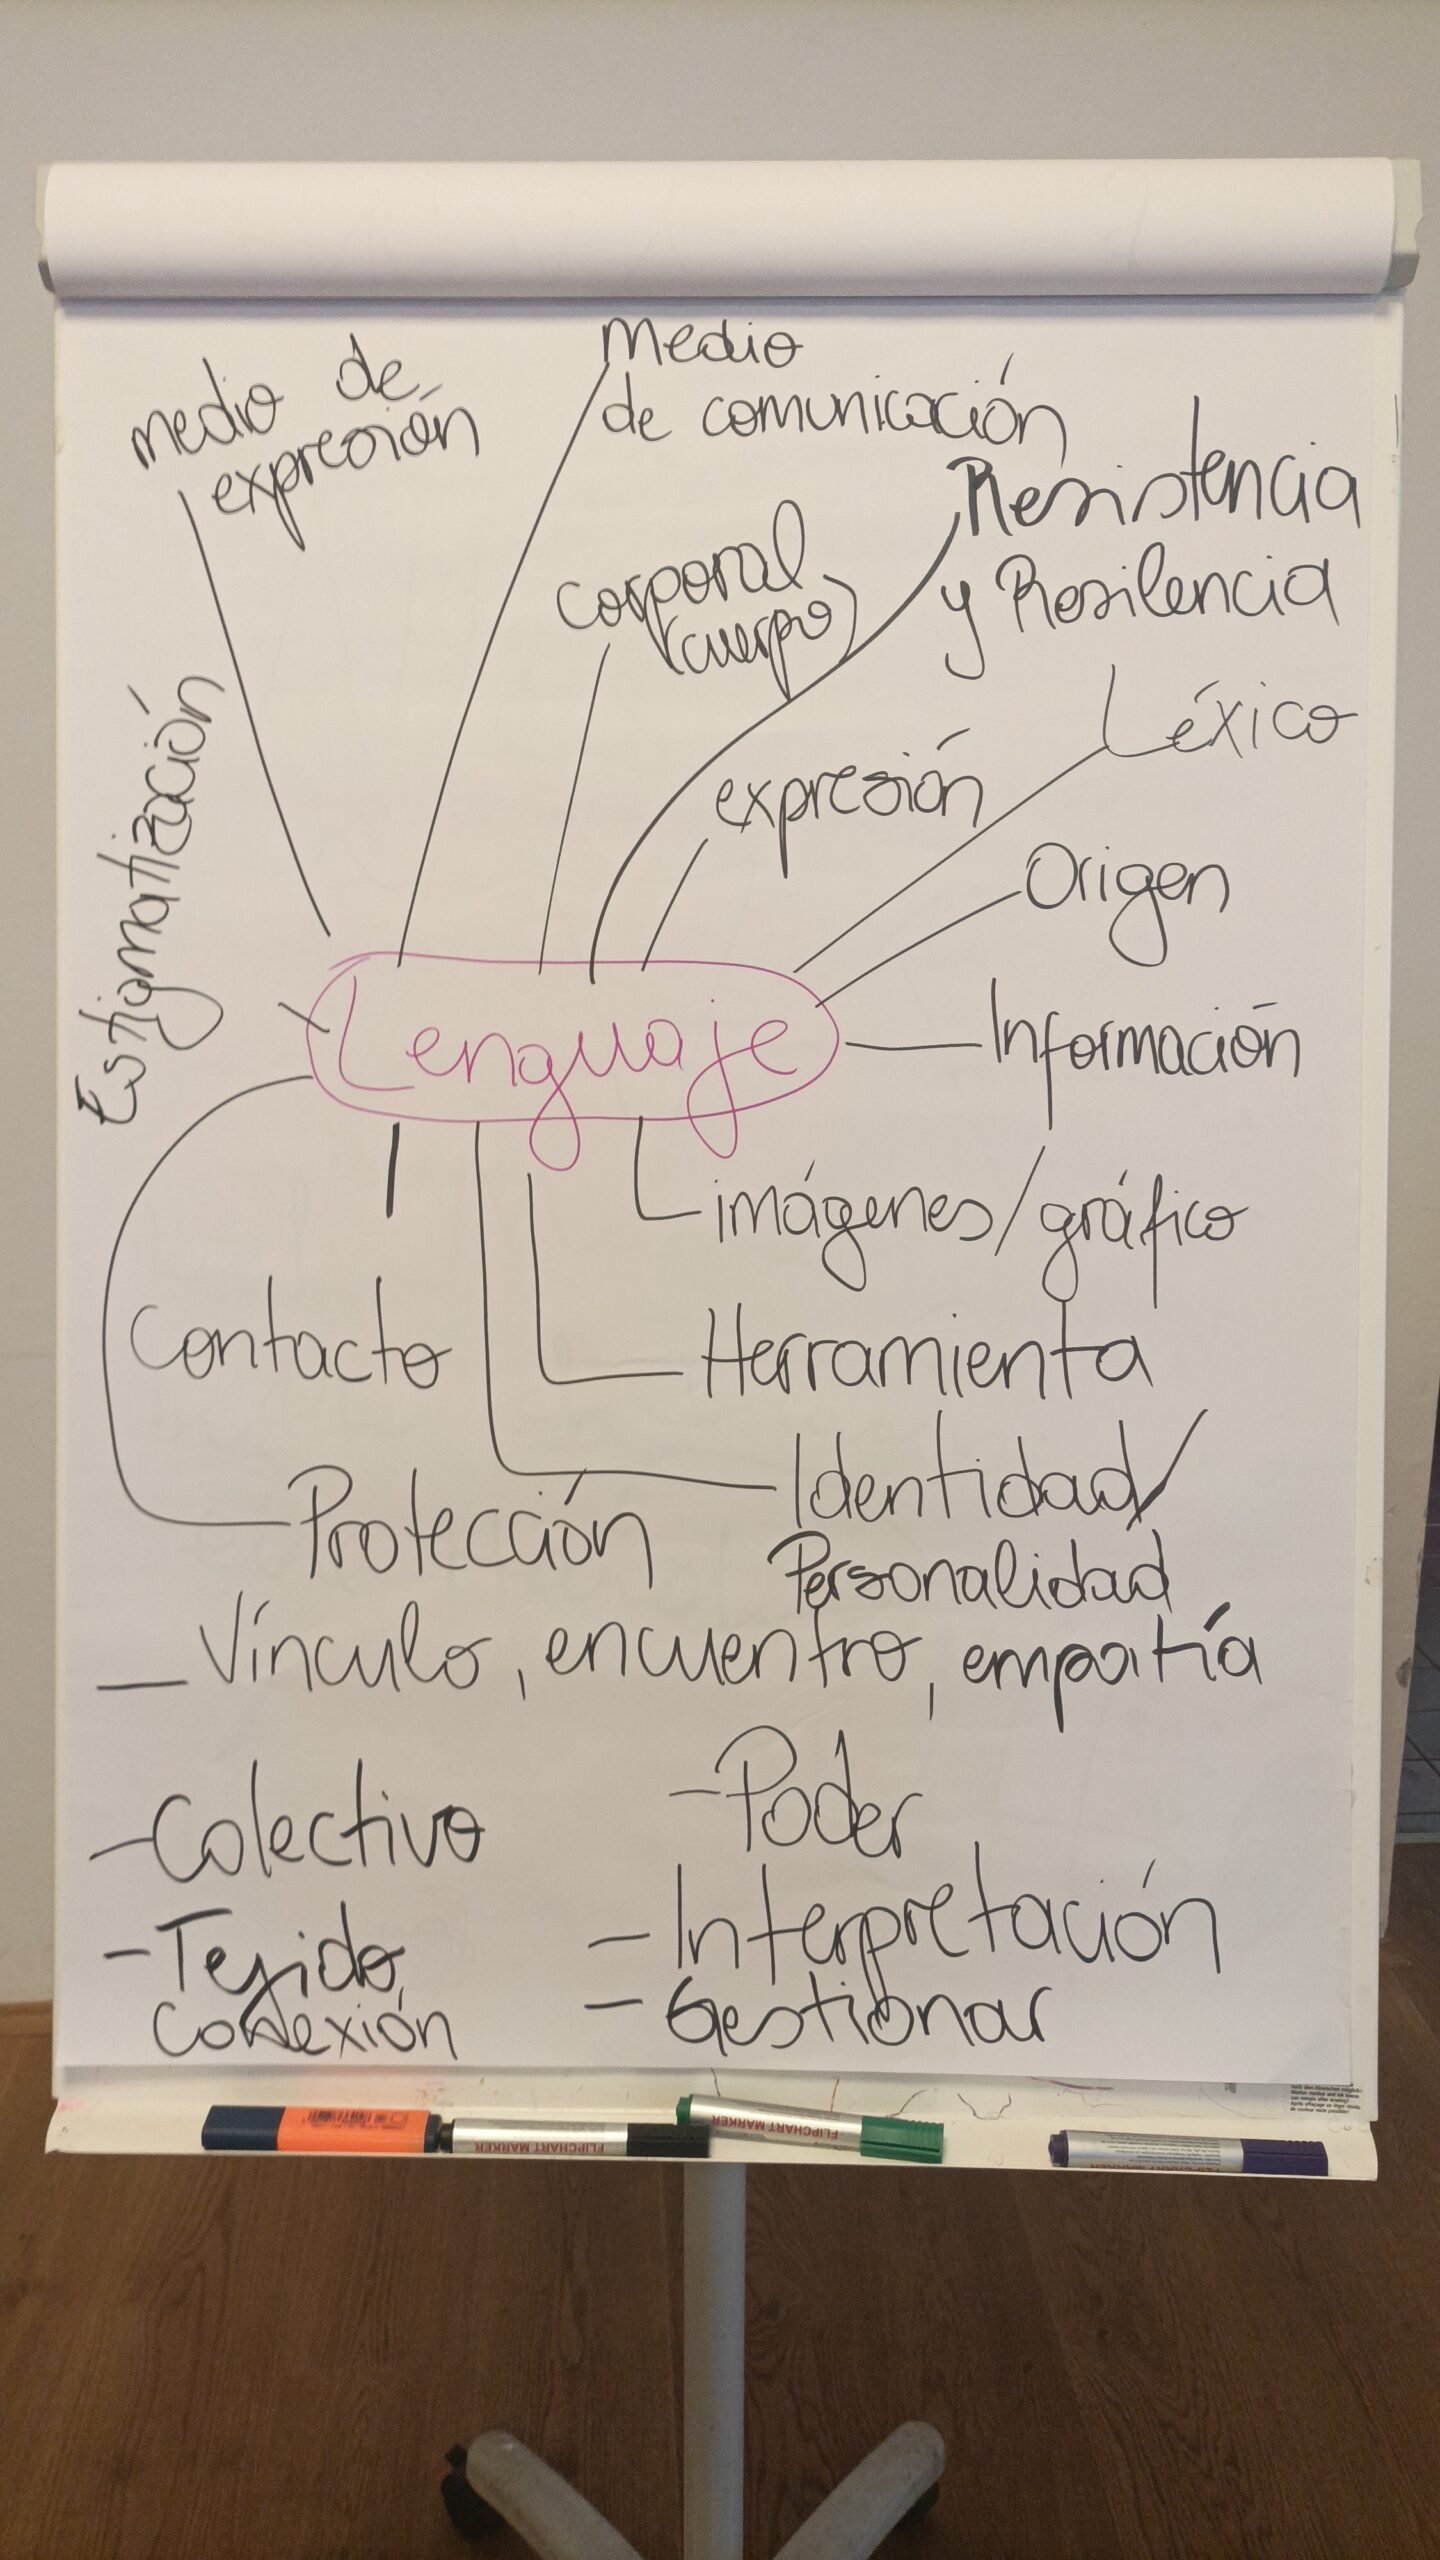 medio de
expresión
Medio
de comunicación
Resistencia
y Resilencia
corporal
(cuerpo)
Léxico
expresión
Origen
Estigmatización
Lenguaje
Información
imágenes/gráfico
Contacto
Herramienta
Identidad/
Personalidad
Protección
- Vínculo, encuentro, empatía
- Poder
- Colectivo
- Interpretación
- Tejido,
Conexión
- Gestionar
FLIPCHART MARKER
FLIPCHART MARKER